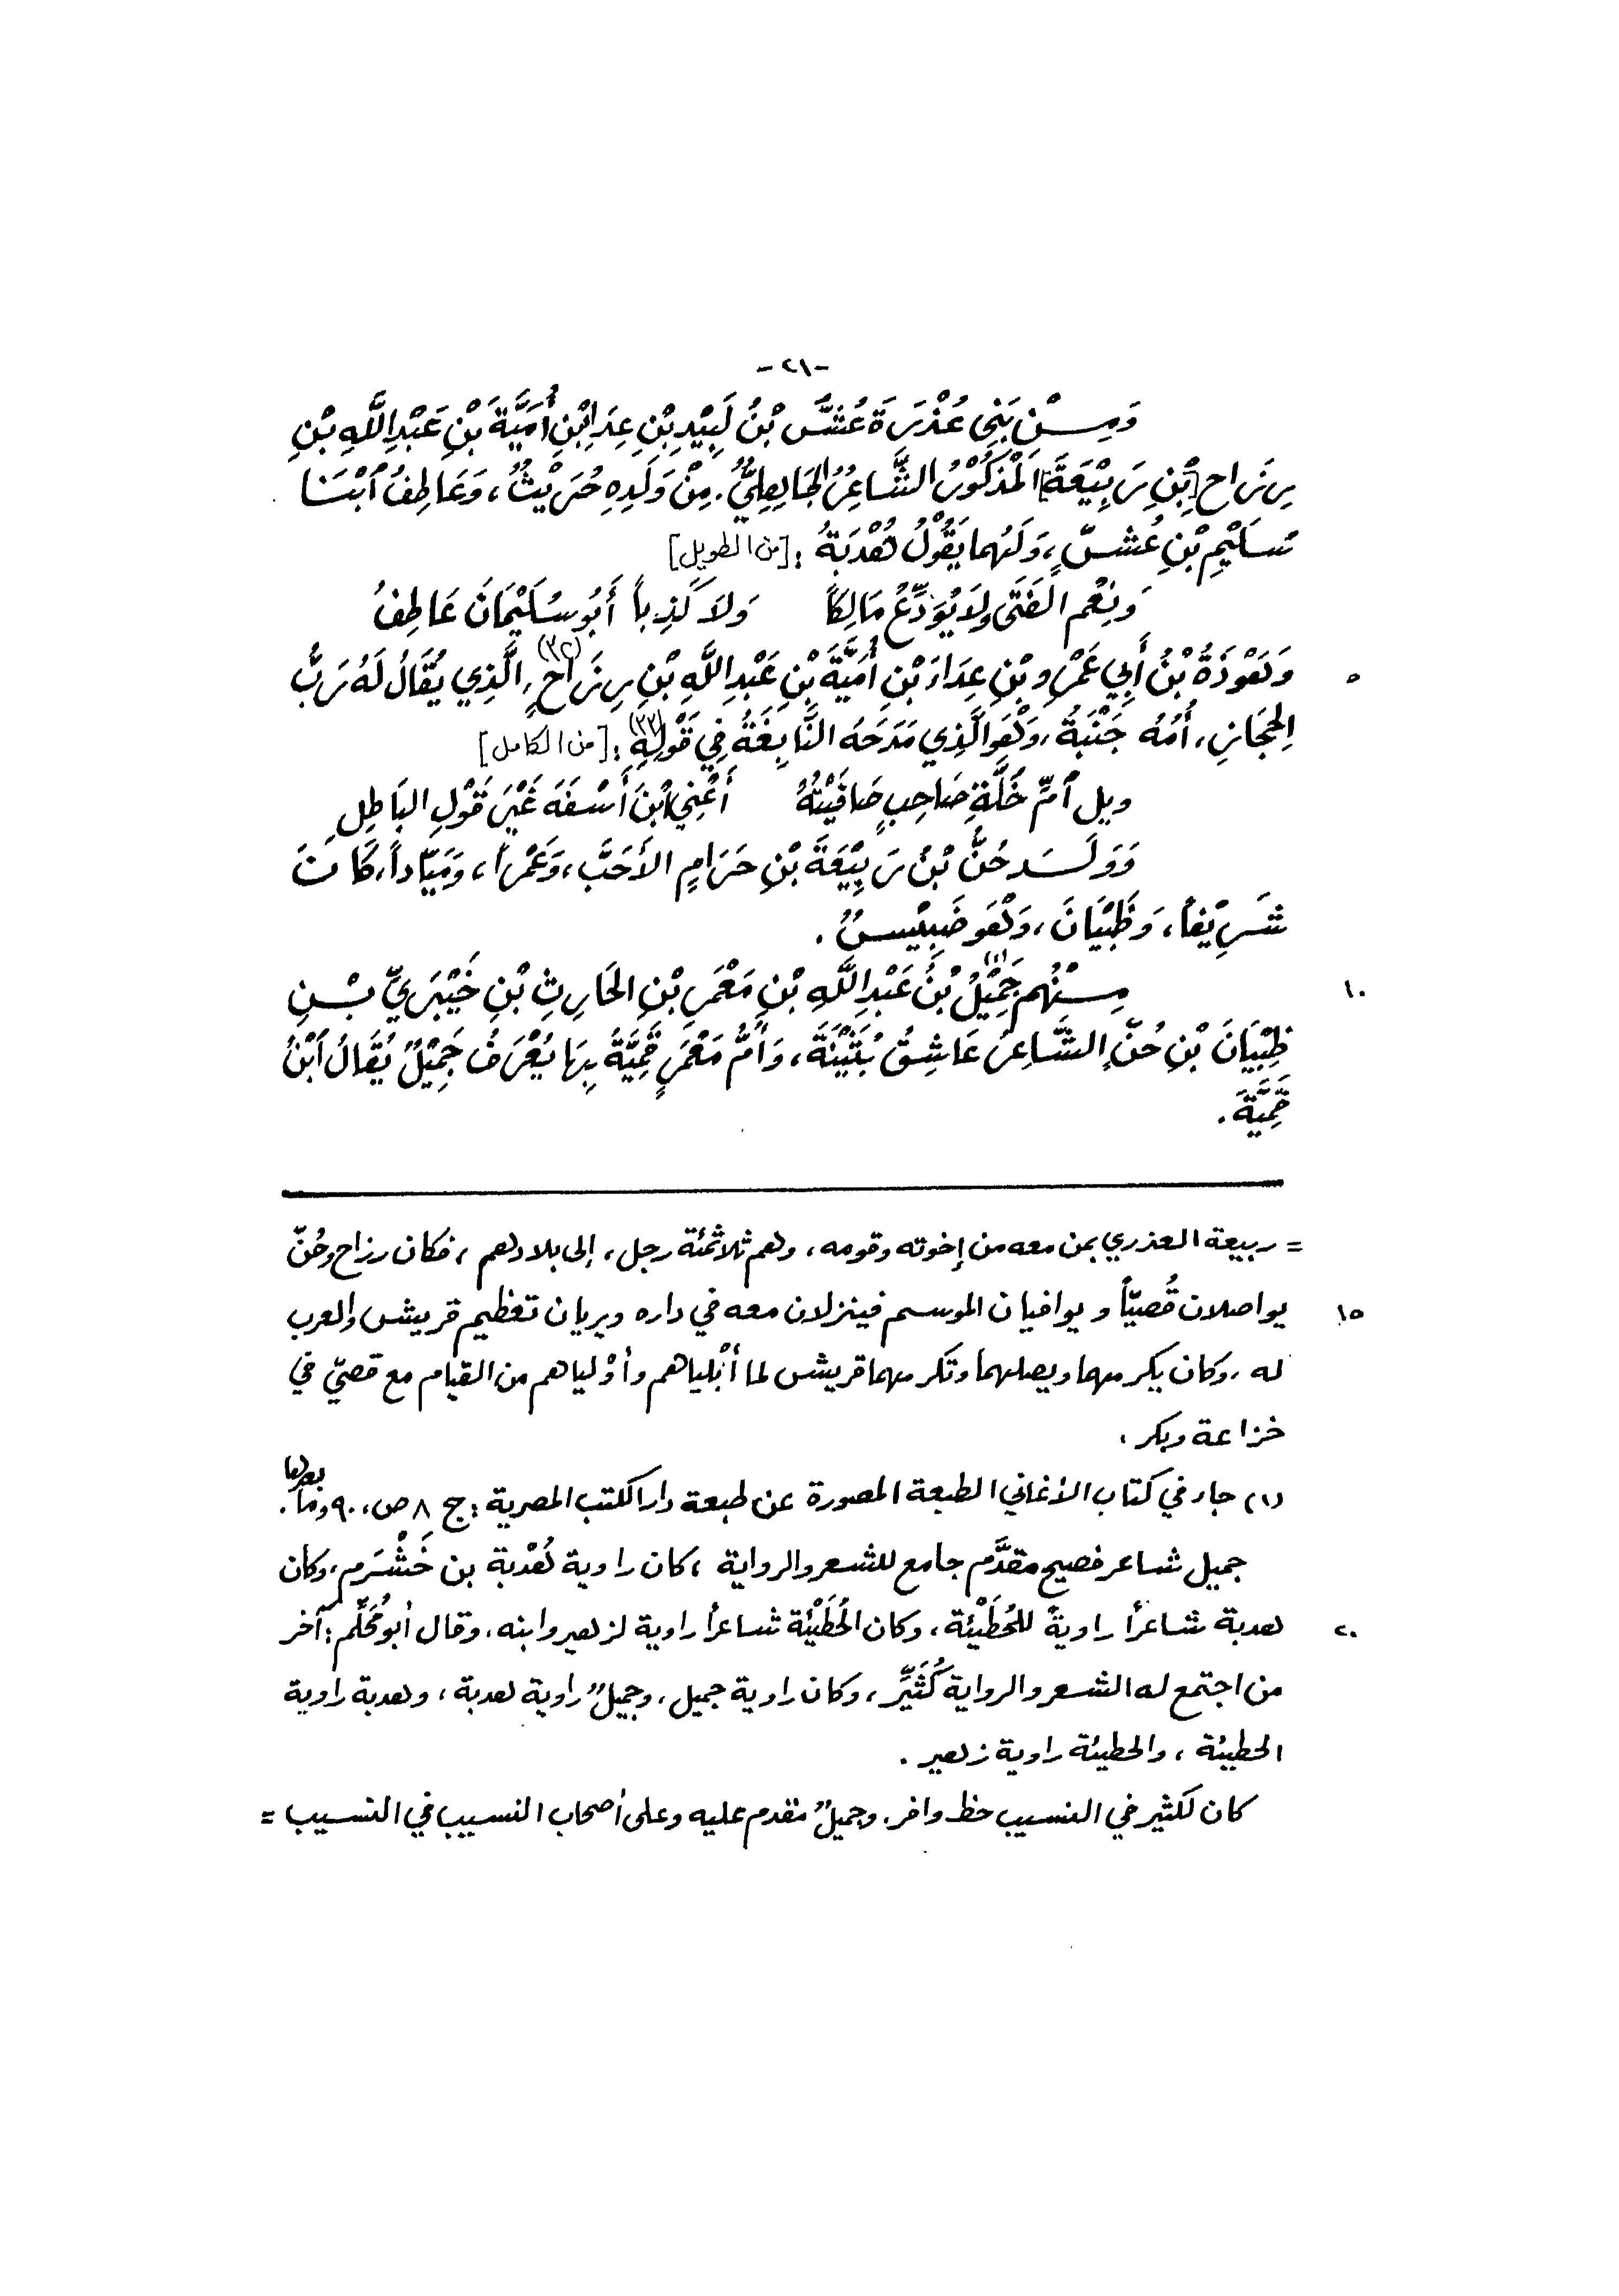 -٢١-
وَمِــنْ بَنِي عُذْرَةَ عُشُّ بْنُ لَبِيْدِ بْنِ عِدَا بْنِ أُمَيَّةَ بْنِ عَبْدِ اللَّهِ بْنِ
رِزَاح [بْنِ رَبِيْعَةَ] المَذْكُوْرُ الشَّاعِرُ الجَاهِلِيُّ. مِنْ وَلَدِهِ حُرَيْثٌ، وَعَاطِفُ ٱبْنَا
سُلَيْمِ بْنِ عُشٍّ، وَلَهُما يَقُوْلُ هُدْبَةُ : [من الطويل]
وَنِعْم الفَتَى ولَا يُوَدِّعُ مَالِكاً وَلَا كَذِباً أَبُو سُلَيْمَانَ عَاطِفُ
٥ وَهَوْذَةُ بْنُ أَبِي عَمْرِو بْنِ عِدَاءَ بْنِ أُمَيَّةَ بْنِ عَبْدِ اللَّهِ بْنِ رِزَاحٍ (٣٢)، الَّذِي يُقَالُ لَهُ رَبُّ
الحِجَازِ، أُمُّهُ جَنْبَةُ، وَهُوَ الَّذِي مَدَحَهُ النَّابِغَةُ فِي قَوْلِهِ (٣٣): [من الكامل]
ويل ٱمِّ خَلَّةِ صَاحِبٍ صَافَيْتُهُ أَعْنِي ٱبْنَ أَسْفَهَ غَيْرَ قَوْلِ البَاطِلِ
وَوَلَــدَ حُنُّ بْنُ رَبِيْعَةَ بْنِ حَرَامٍ الأَحَبَّ، وَعَمْراً، وَمَيّاداً، كَانَ
شَرِيْفاً، وَظَبْيَانَ، وَهُوَ ضَبِيْسٌ .
١٠ مِــنْهُم جَمِيْلُ (١) بْنُ عَبْدِ اللَّهِ بْنِ مَعْمَرِ بْنِ الحَارِثِ بْنِ خَيْبَرِيِّ بْــنِ
ظَبْيَانَ بْنِ حُنٍّ الشَّاعِرُ عَاشِقُ بُثَيْنَةَ، وَأُمُّ مَعْمَرٍ قَمِيَّةُ بِهَا يُعْرَفُ جَمِيْلٌ يُقَالُ ٱبْنُ
قَمِيَّةَ .
= ربيعة العذري بمن معه من إخوته وقومه، وهم ثلاثمئة رجل، إلى بلادهم ، فكان رزاح وحُنّ
١٥ يواصلان قُصيّاً ويوافيان الموسم فينزلان معه في داره ويريان تعظيم قريش والعرب
له ، وكان يكرمهما ويصلهما وتكرمهما قريش لما أَبْلياهم وأَوْلياهم من القيام مع قصيّ في
خزاعة وبكر .
(١) جاء في كتاب الأغاني الطبعة المصورة عن طبعة دار الكتب المصرية : ج ٨ ص، ٩٠ وما بعدها .
جميل شاعر فصيح مقدَّم جامع للشعر والرواية ، كان راوية هُدْبة بن خَشْرَم، وكان
٢٠ هدبة شاعراً راويةً للحُطَيْئة، وكان الحُطَيْئة شاعراً راوية لزهير وابنه، وقال أبو مُحَلِّم : آخر
من اجتمع له الشعر والرواية كُثَيِّر، وكان راوية جميل ، وجميلٌ راوية هدبة ، وهدبة راوية
الحطيئة ، والحطيئة راوية زهير .
كان لكثير في النسيب حظ وافر، وجميلٌ مقدم عليه وعلى أصحاب النسيب في النسيب =